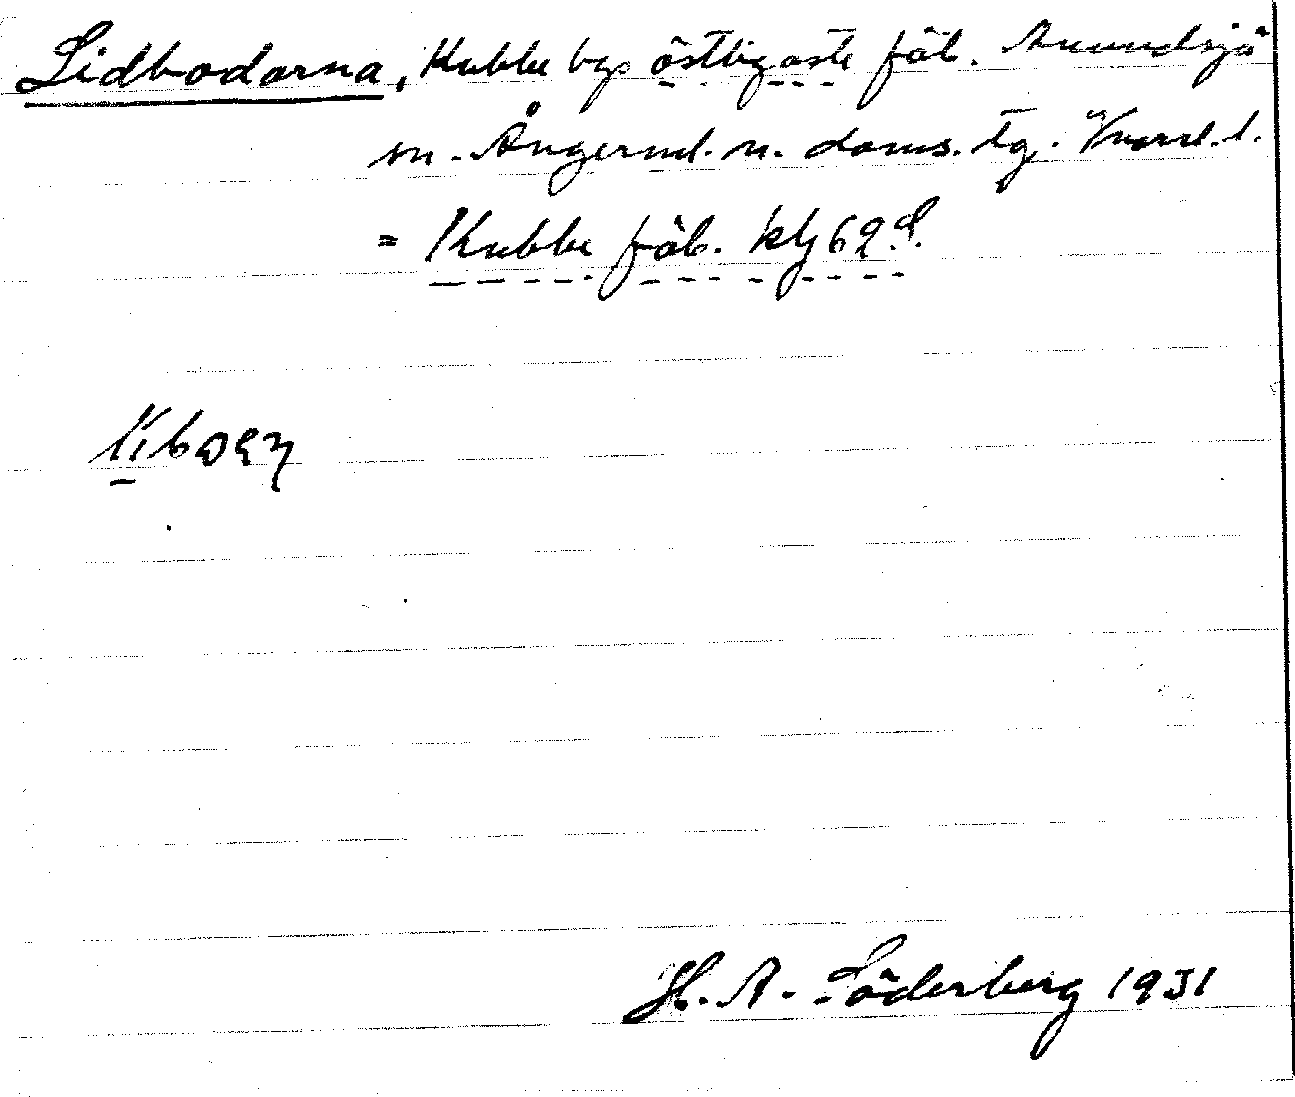 Lidbodarna, Kubbe bys östligaste fäb. Anundsjö
sn. Ångerml. n. doms. tg. Vnorrl. l.
= Kubbe fäb. kbl 62 S.
H. A. Söderberg 1931